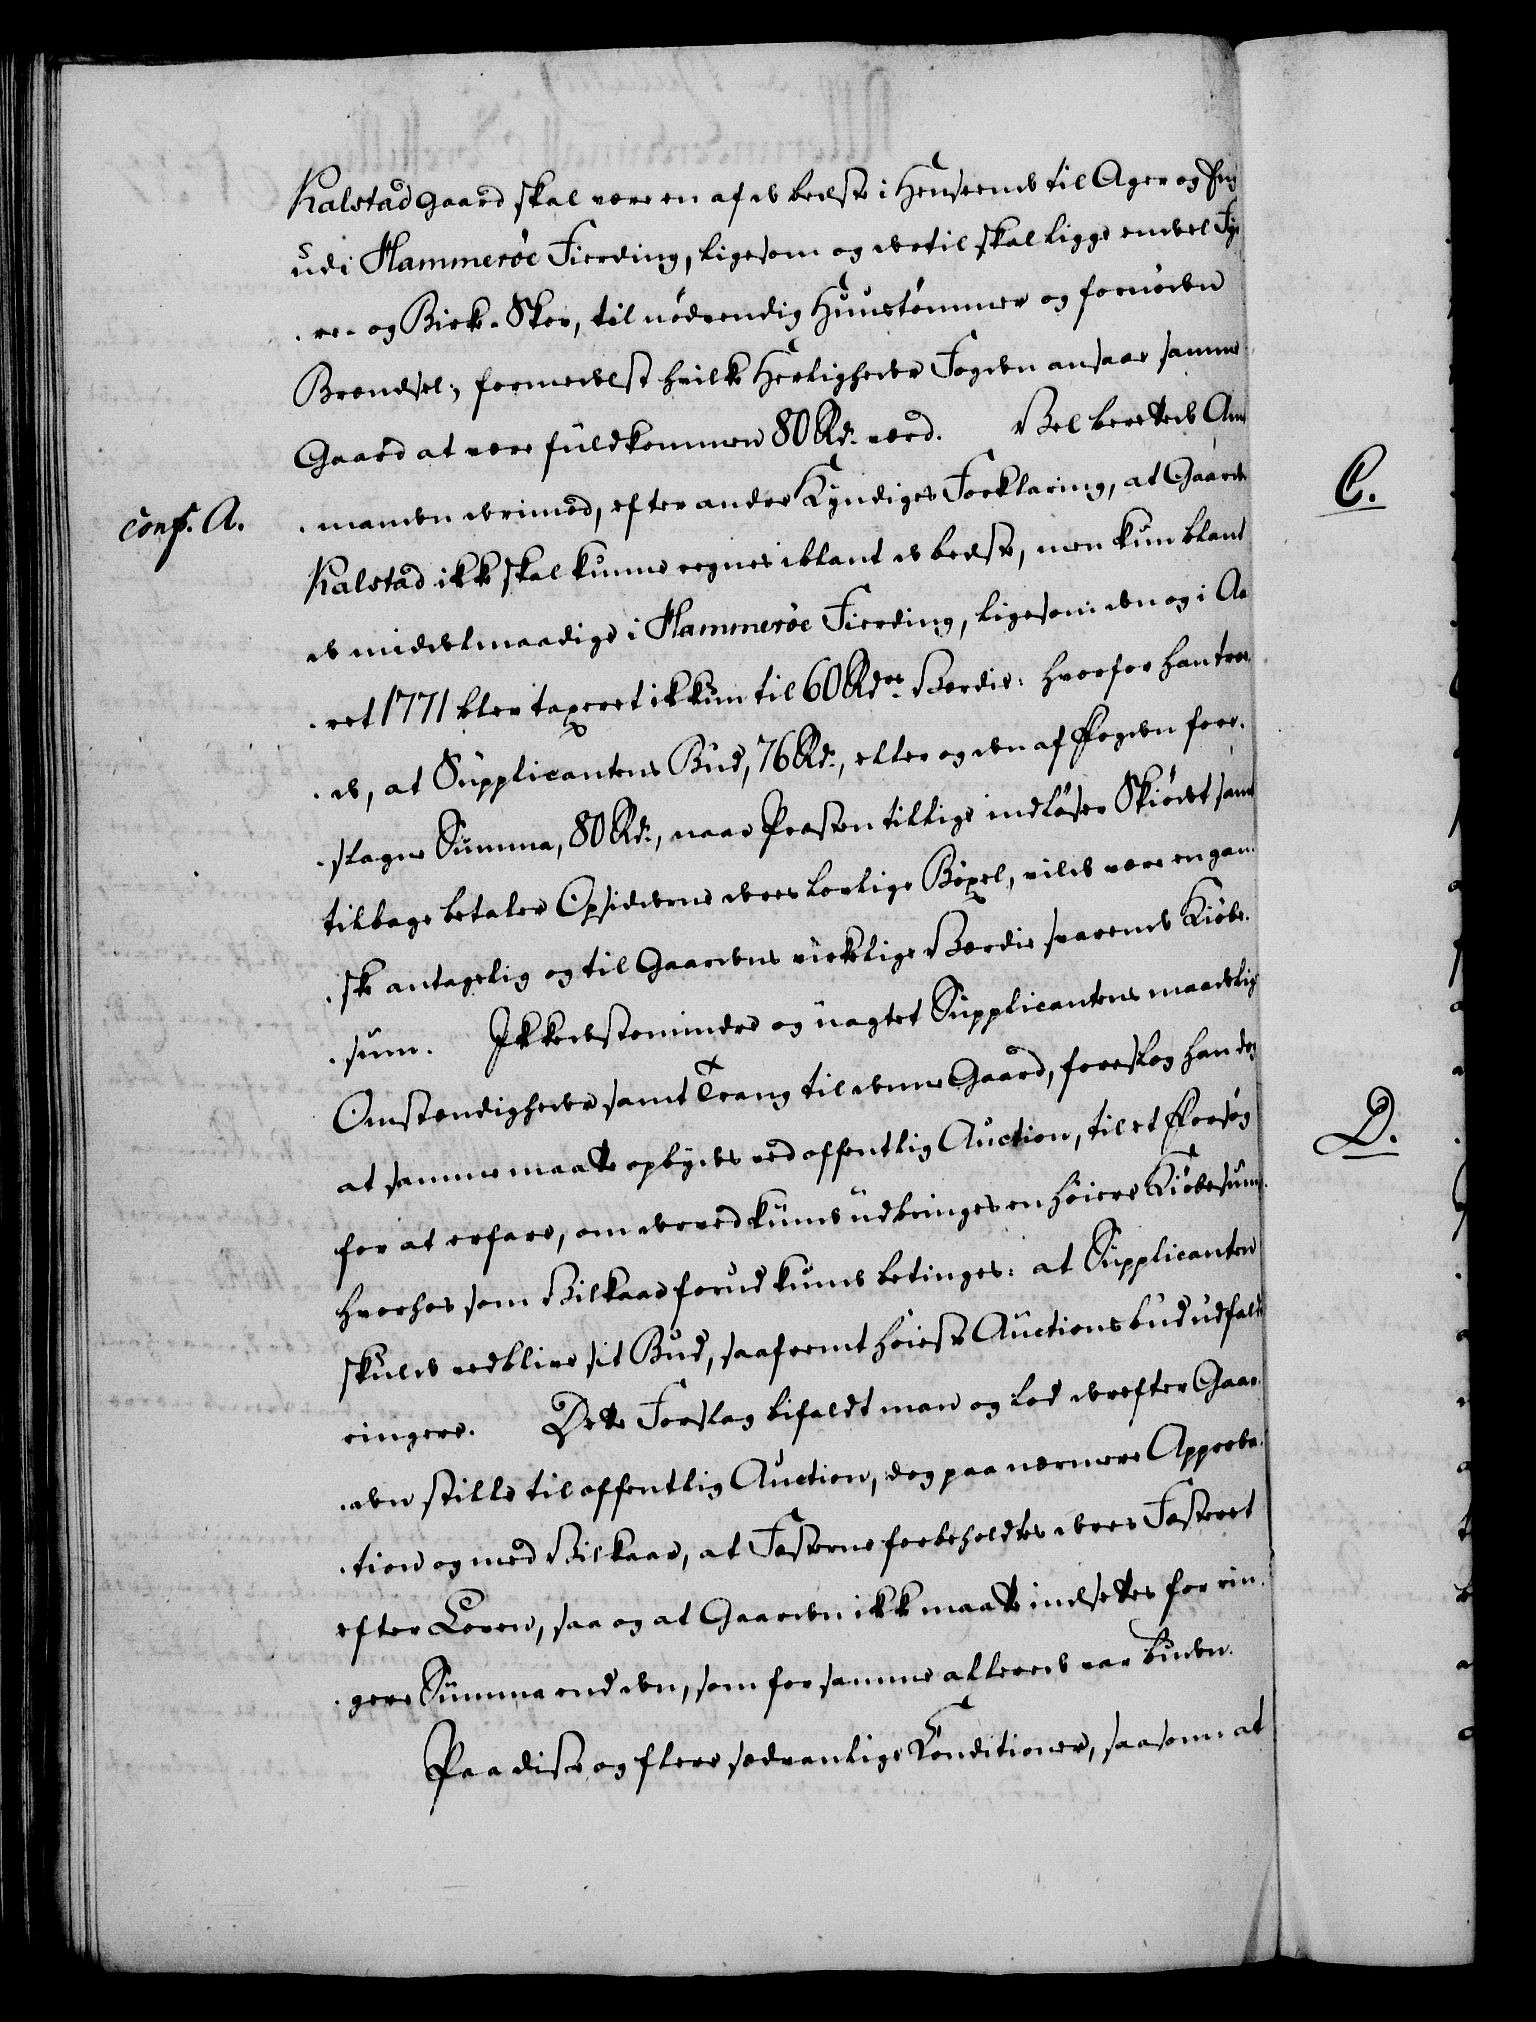 Kalstad Gaard skal være en af de bedste i Henseende til Ager og Eng
udi Hammeröe Fierding, ligesom og dertil skal ligge endeel Fy¬
re- og Birke-Skov, til nödvendig Huustömmer og fornöden
Brændsel; formedelst hvilke Herligheder Fogden ansaae samme
Gaard at være fuldkommen 80 Rd. værd. Vel berettede Am
conf. A.
manden derimod, efter andre Kyndiges Forklaring, at Gaarden
C.
Kalstad ikke skal kunne regnes iblant de bedste, men kun blant
de middelmaadige i Hammeröe Fierding, ligesom den og i Aa
ret 1771 blev taxeret ikkun til 60 Rdrs Værdie: hvorfor han troe
de, at Supplicantens Bud, 76 Rd., eller og den af Fogden fore¬
slagne Summa, 80 Rd., naar Præsten tillige indlöser Skiödet samt
tilbage betaler Opsidderne deres lovlige Böxel, vilde være en gan¬
ske antagelig og til Gaardens virkelige Værdie svarende Kiöbe¬
sum. Ikkedestomindre og uagtet Supplicantens maadelige
Omstændigheder samt Trang til denne Gaard, foreslog han dog
at samme maatte opbydes ved offentlig Auction, til et Forsög
D.
for at erfare, om derved kunde udbringes en höiere Kiöbesum,
hvorhos som Vilkaar forud kunde betinges: at Supplicanten
skulde vedblive sit Bud, saafremt höieste Auctionsbud udfaldt
ringere. Dette Forslag bifaldt man og lod derefter Gaar¬
den stille til offentlig Auction, dog paa nærmere Approba¬
tion og med Vilkaar, at Fæsterne forbeholdtes deres Fæsteret
efter Loven, saa og at Gaarden ikke maatte indsettes for rin¬
gere Summa end den, som for samme allerede var buden.
Paa disse og flere sædvanlige Conditioner, saasom: at